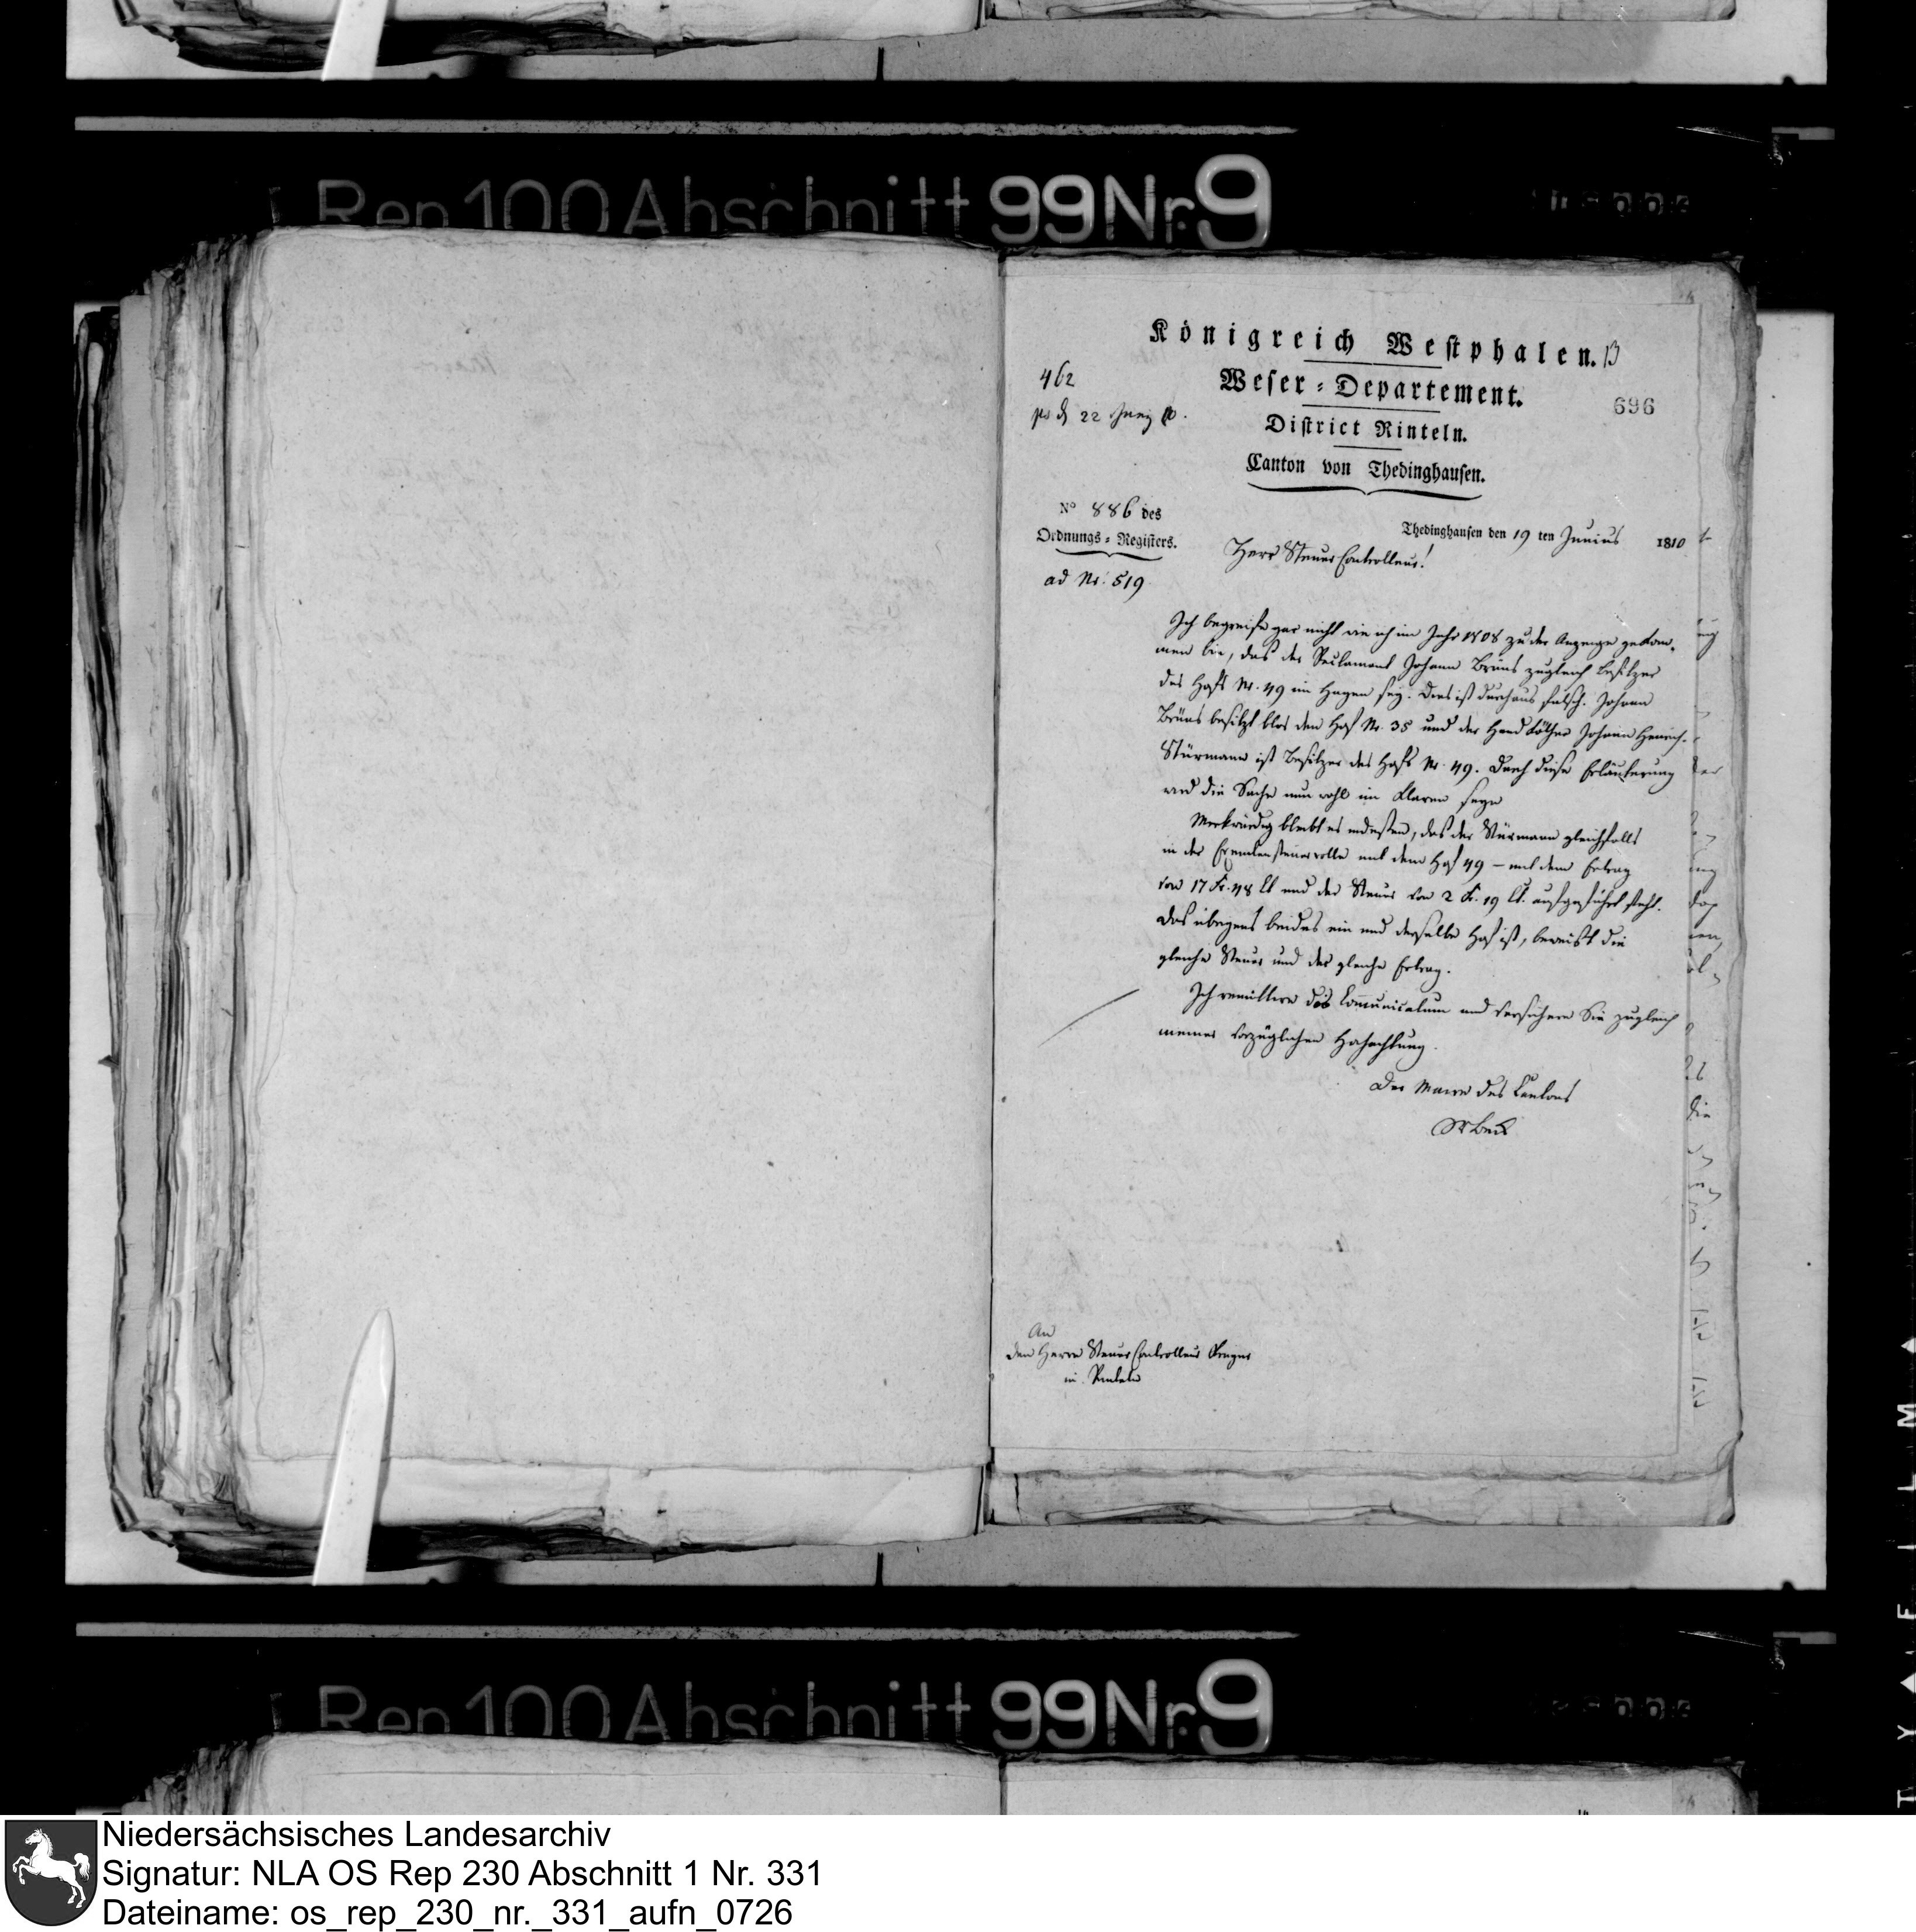 Rep 100 Abschnitt 99 Nr. 9
Königreich Westphalen. 13
462
Weser-Departement.
696
ps d 22 Juny 10.
District Rinteln.
Canton von Thedinghausen.
No 886 des
Ordnungs-Registers.
Thedinghausen den 19 ten Junius 1810
Herr Steuer Controlleur!
ad Nr. 519
Ich begreife gar nicht wie ich im Jahr 1808 zu der Anzeige gekom-
men bin, das der Reclamant Johann Brüns zugleich Besitzer
des Hofs Nr. 49 im Hagen sey. Dies ist durchaus falsch. Johann
Brüns besitzt blos den Hof Nr. 35 und der Handköther Johann Henrich
Stürmann ist Besitzer des Hofs Nr. 49. Durch diese Erläuterung
wird die Sache nun wohl im Klaren seyn
Merkwürdig bleibt es indessen, das der Stürmann gleichfalls
in der Exemtensteuerrolle mit dem Hof 49 – mit dem Ertrag
von 17 Fr. 48 Ct und der Steuer von 2 Fr. 19 Ct. aufgeführt steht.
Das übrigens beides ein und derselbe Hof ist, beweist die
gleiche Steuer und der gleiche Ertrag.
Ich remittire das Communicatum und versichere Sie zugleich
meiner vorzüglichen Hochachtung.
Der Maire des Cantons
An
den Herrn Steuer Controlleur
in Rinteln
Rep 100 Abschnitt 99 Nr. 9
FILM
Niedersächsisches Landesarchiv
Signatur: NLA OS Rep 230 Abschnitt 1 Nr. 331
Dateiname: os_rep_230_nr._331_aufn_0726